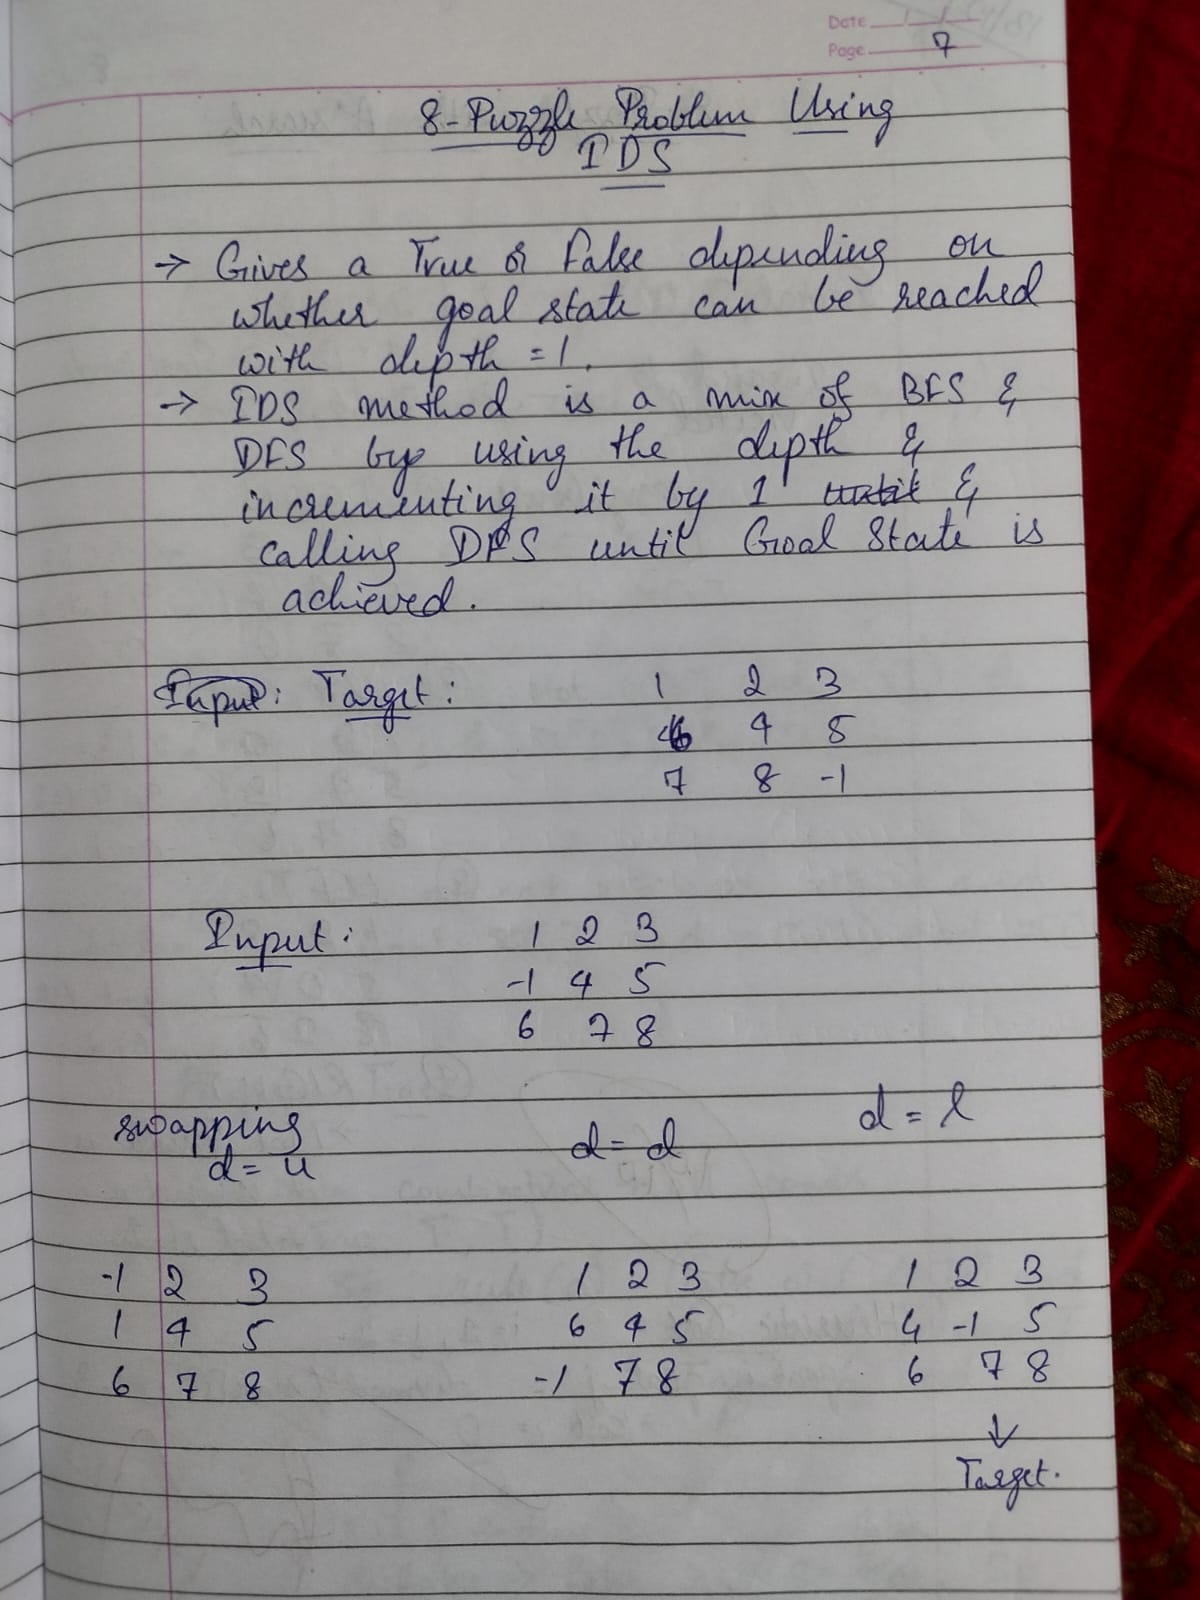 Date / /
Page 7
8-Puzzle Problem Using
IDS
→ Gives a True or False depending on
whether goal state can be reached
with depth = 1.
→ IDS method is a mix of BFS &
DFS by using the depth &
incrementing it by 1 until &
calling DFS until Goal State is
achieved.
Input: Target: 1 2 3
6 4 5
7 8 -1
Input: 1 2 3
-1 4 5
6 7 8
swapping
d = u d = d d = l
-1 2 3 1 2 3 1 2 3
1 4 5 6 4 5 4 -1 5
6 7 8 -1 7 8 6 7 8
↓
Target.